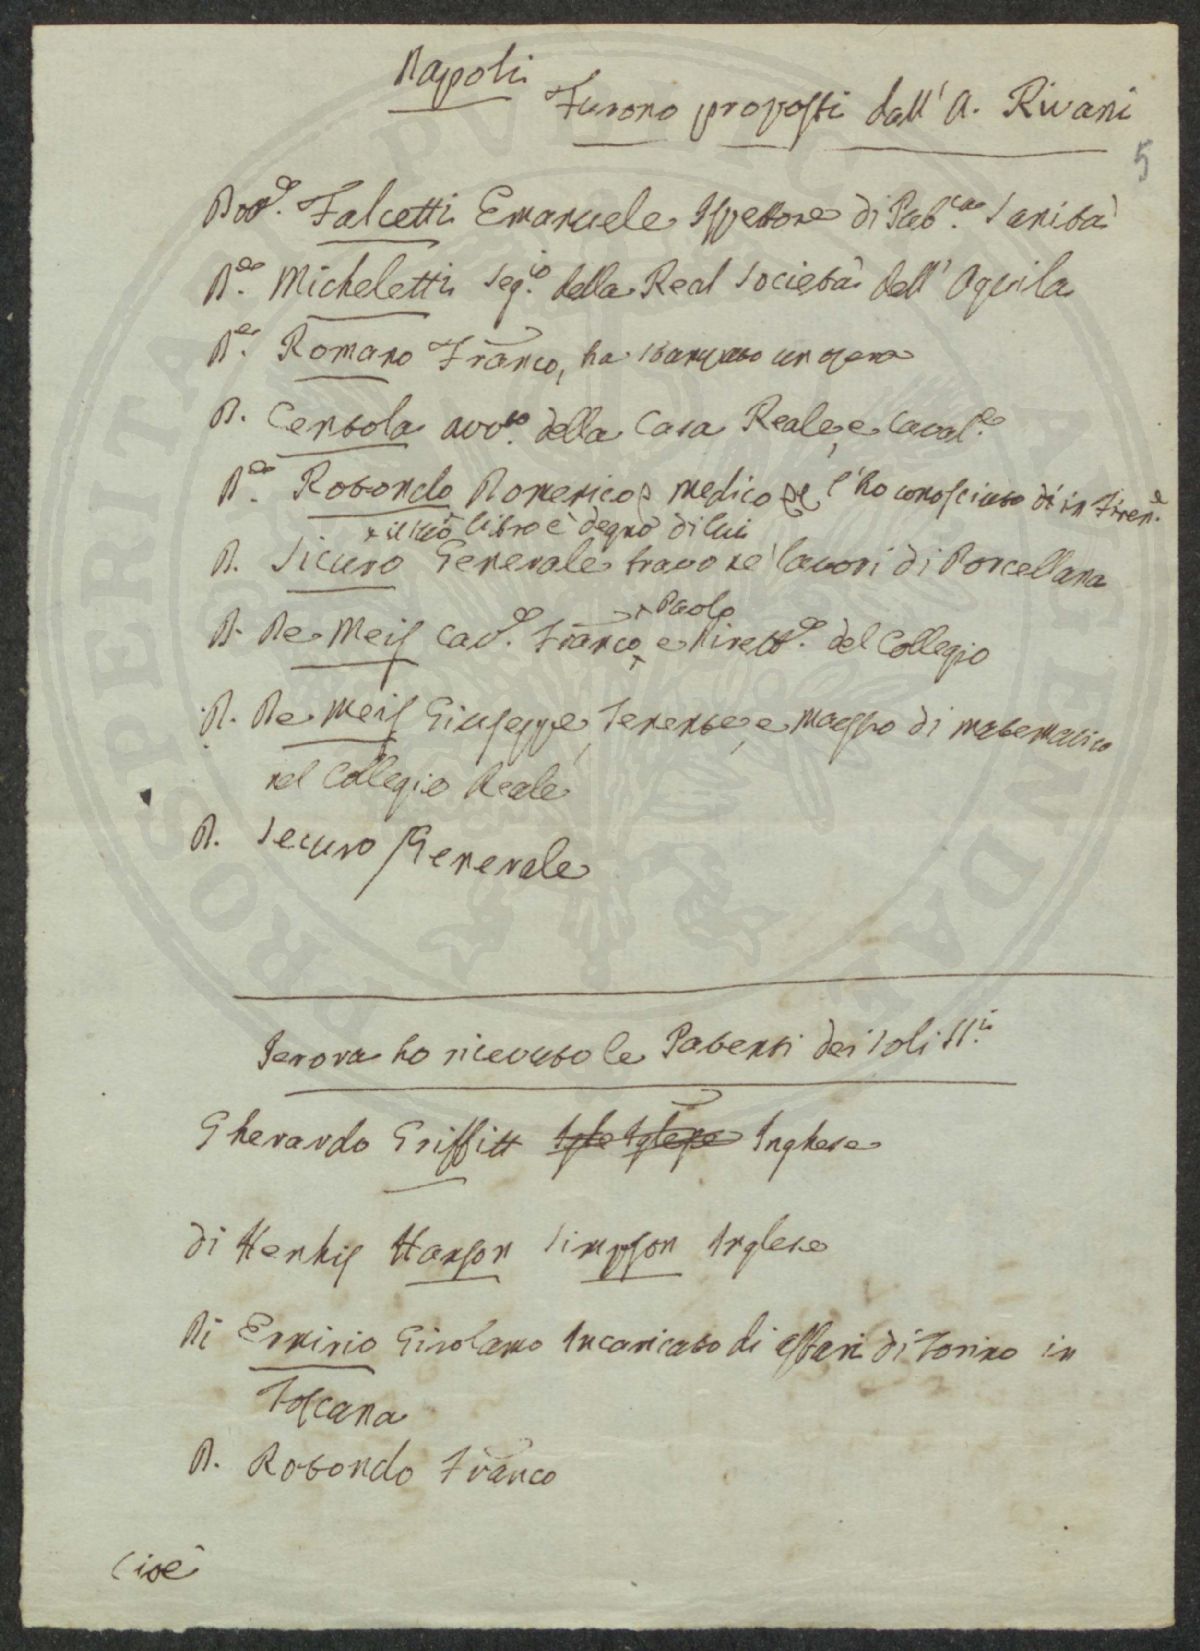 Napoli
Furono proposti dall' A. Rivani
5
Dott.e Falcetti Emanuele Ispettore di Pub.ca Sanità
D.e Micheletti Seg.io della Real Società dell' Aquila
D.e Romano Franco, ha stampato un opera
D. Centola avv.to della Casa Reale, e Caval.e
D.e Rotondo Domenico medico l'ho conosciuto in Firen.e
x il suo libro è degno di lui
D. Sicuro Generale bravo ne' lavori di Porcellana
Paolo
D. De Meis Cav.e Franco e Dirett.e del Collegio
D. De Meis Giuseppe, Tenente, e maestro di matematica
nel Collegio Reale
D. Securo Generale
Per ora ho ricevuto le Patenti dei soli SS.i
Gherardo Griffitt Inghese
di Henkis Hanson Simpson Inglese
Di Ermirio Girolamo Incaricato di affari di Torino in
Toscana
D. Rotondo Franco
Cioè
PROSPERITATI PUBLICAE AUGENDAE